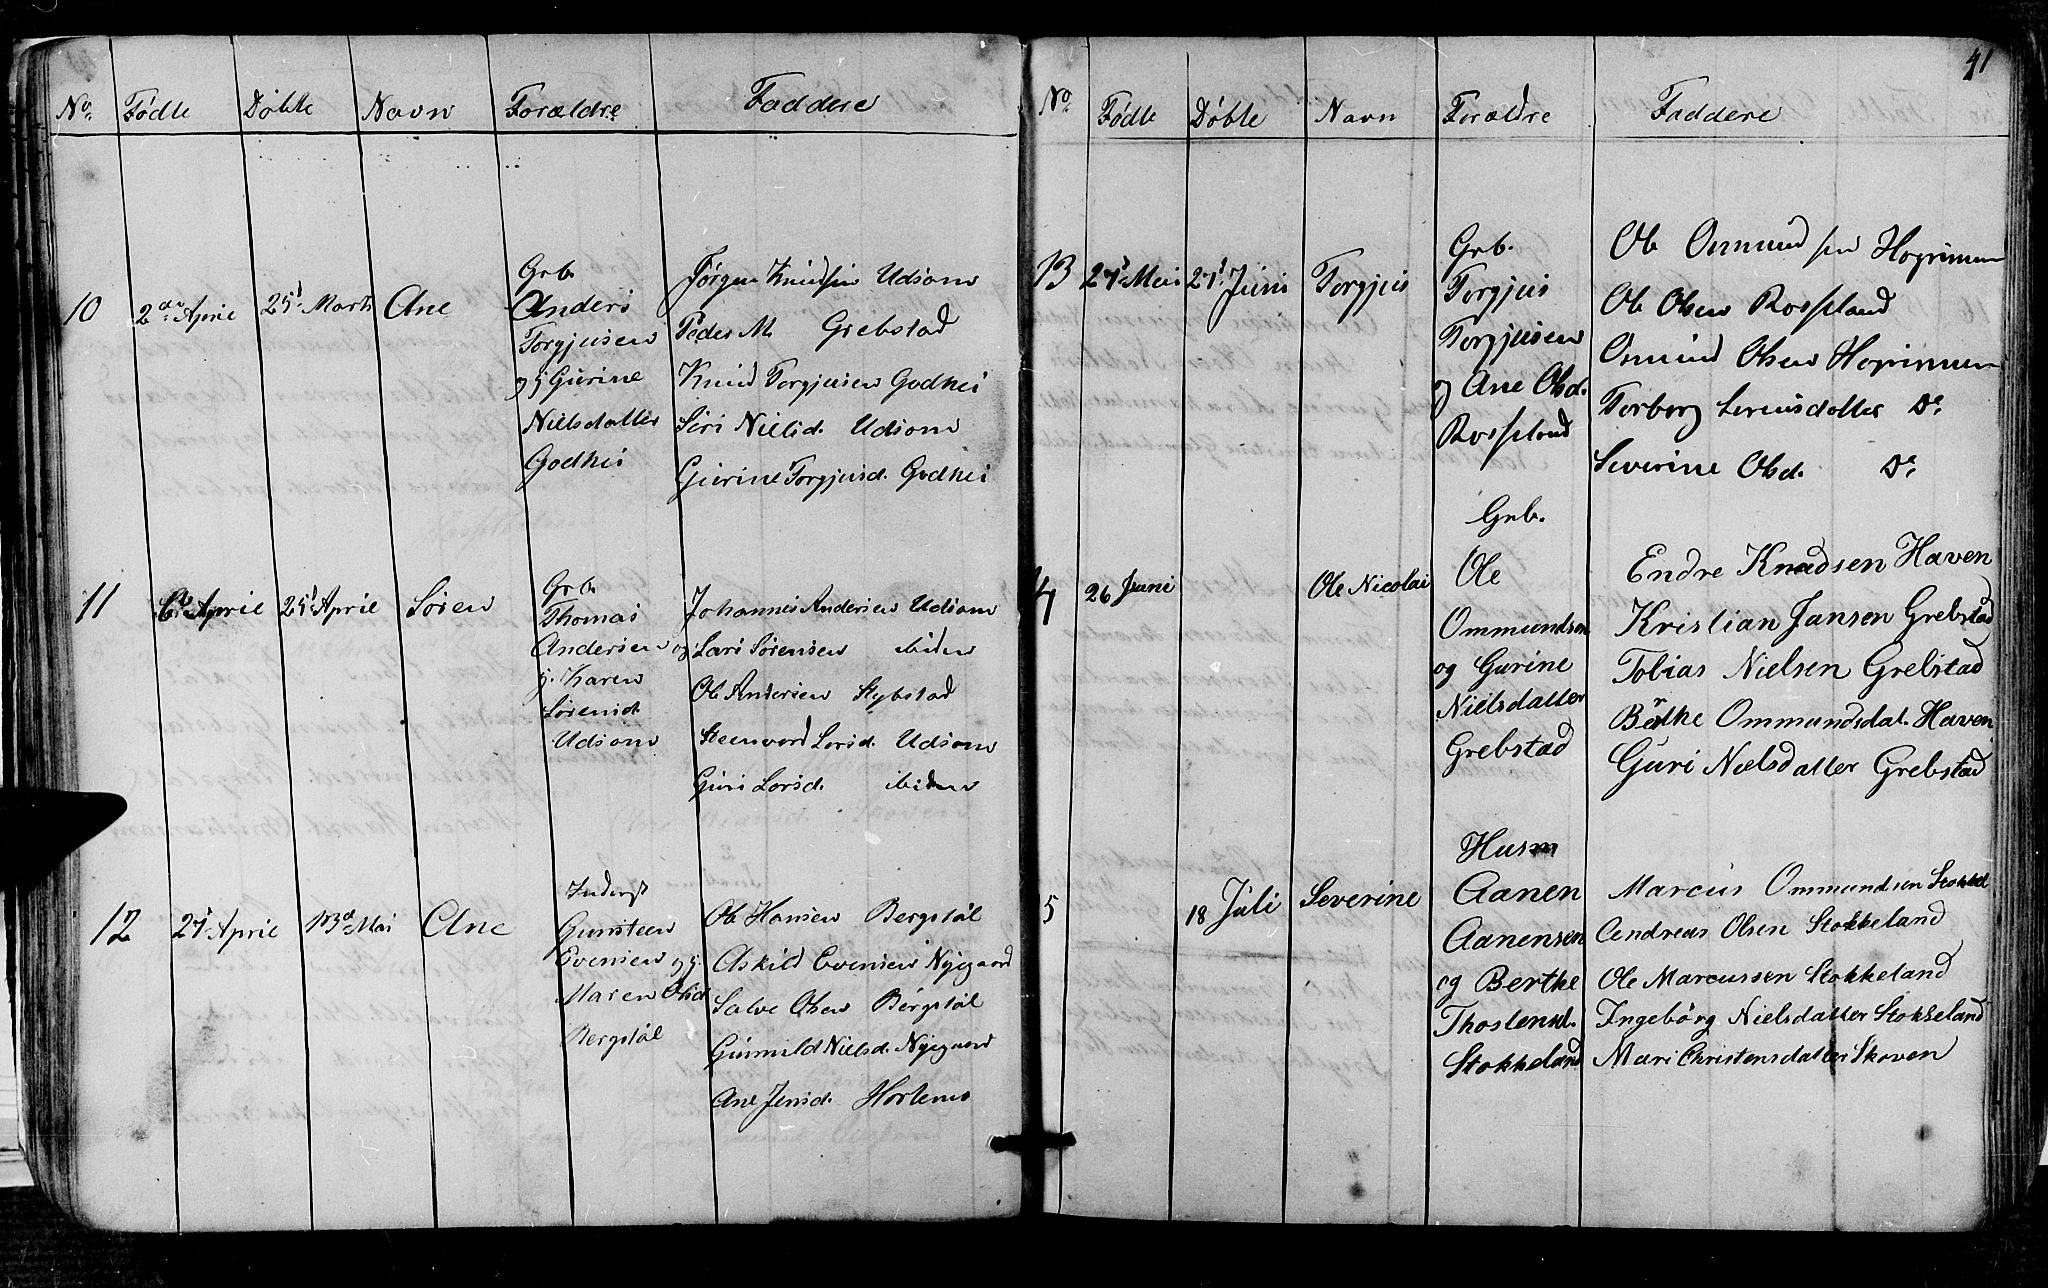 No. Fødte Døbte Navn Forældre Faddere
10 2den Aprie 25de Marts Ane
Grb.
Anders
Torgjusen
og Gurine
Nielsdatter
Godhei
Jørgen Knudsen Udsom
Peder M. Grebstad
Knud Torgjusen Godhei
Siri Nielsd. Udsom
Gurine Torgjusd. Godhei
11 6te Aprie 25de Aprie Søren
Grb.
Thomas
Andersen og
Karen
Sørensd.
Udsom
Johannes Andersen Udsom
Lars Sørensen ibiden
Ole Andersen Stybstad
Steenvord Larsd. Udsom
Guri Larsd. ibiden
12 27de Aprie 13de Mai Ane
Inderst
Gunsteen
Evensen og
Maren Olsd.
Bergstøl
Ole Hansen Bergstøl
Askild Evensen Nygaard
Salve Olsen Bergstøl
Gunnild Nielsd. Nygaard
Ane Jensd. Hortemo
41
No. Fødte Døbte Navn Forældre Faddere
13 27de Mai 27de Juni Torgjus
Grb.
Torgjus
Torgjusen
og Ane Olsd.
Rossland
Ole Omundsen
Ole Olsen Rossland
Omund Olsen
Torborg Lorensdatter Do.
Severine Olsd. Do.
26 Juni Ole Nicolai
Grb.
Ole
Ommundsen
og Gurine
Nielsdatter
Grebstad
Endre Knudsen Haven
Kristian Jansen Grebstad
Tobias Nielsen Grebstad
Berthe Ommundsdat. Haven
Guri Nielsdatter Grebstad
5 18 Juli Severine
Husm
Aanen
Aanensen
og Berthe
Thostensd.
Stokkeland
Marcus Ommundsen Stokkel
Andreas Olsen Stokkeland
Ole Marcussen Stokkeland
Ingebørg Nielsdatter Stokkeland
Mari Christensdatter Skoven